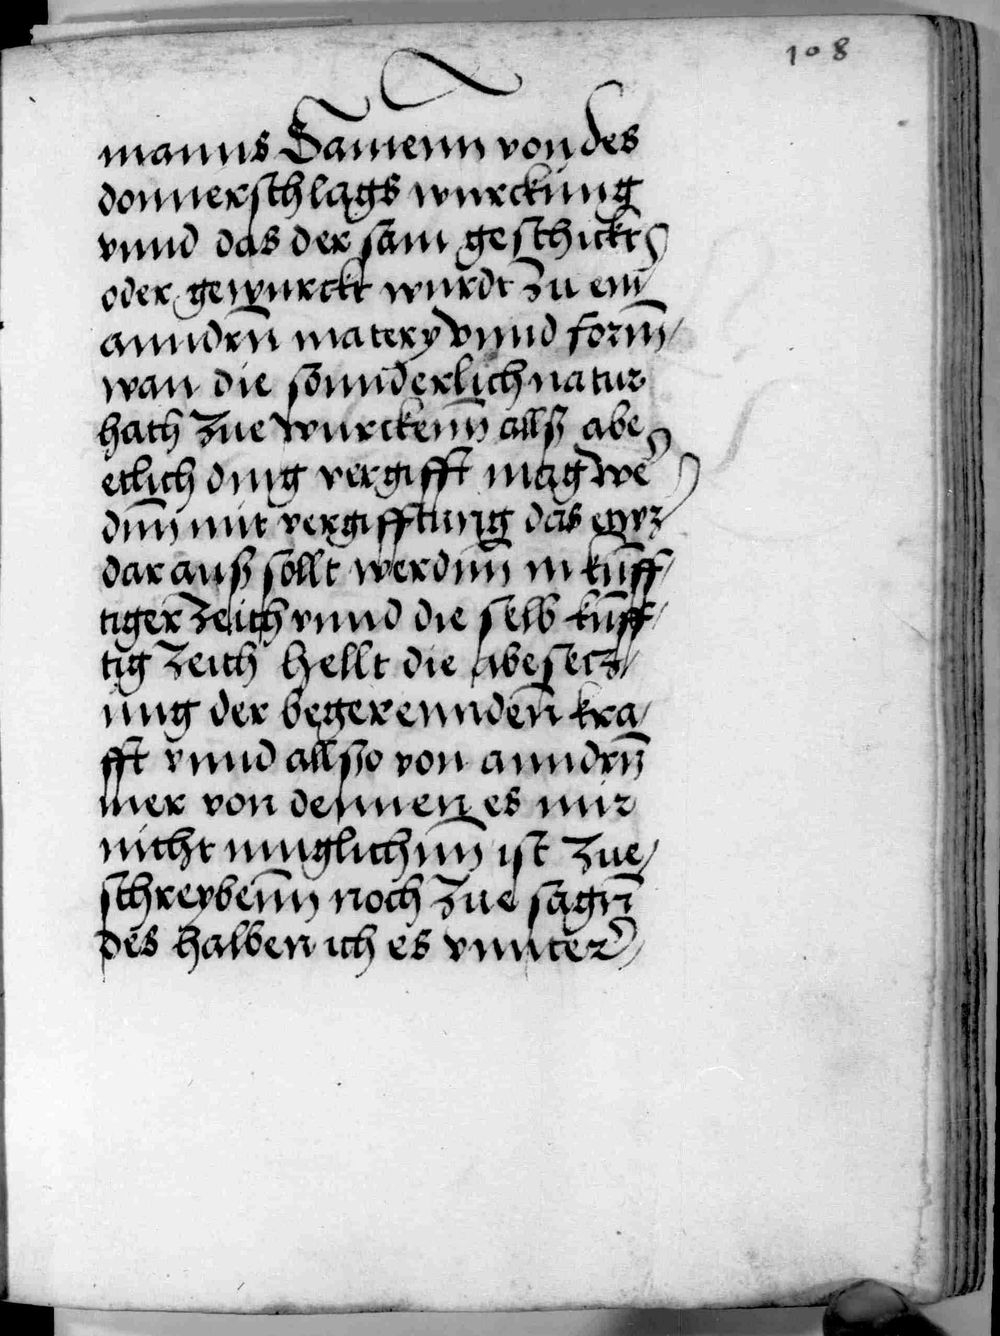 108
manns Samenn von des
donnerschlags wurckung
vnnd das der sam geschickt
oder gewurckt wurdt zu ein
anndrn̄ matery vnnd form̄
wan die sonnderlich natur
hath zue wurckenn̄ allß abe
etlich ding vergifft mag we
dīnn mit vergifftung das
dar auß sollt werdnn̄ in kūnff
tiger zeith vnnd die selb kūnff
tig zeith hellt die abesetz
ung der begerenndenn̄ kra
fft vnnd allßo von anndrn̄
mer von dennen es mir
nicht muglichnn̄ ist zue
schreybenn̄ noch zue sagn̄
des halben ich es vnnter